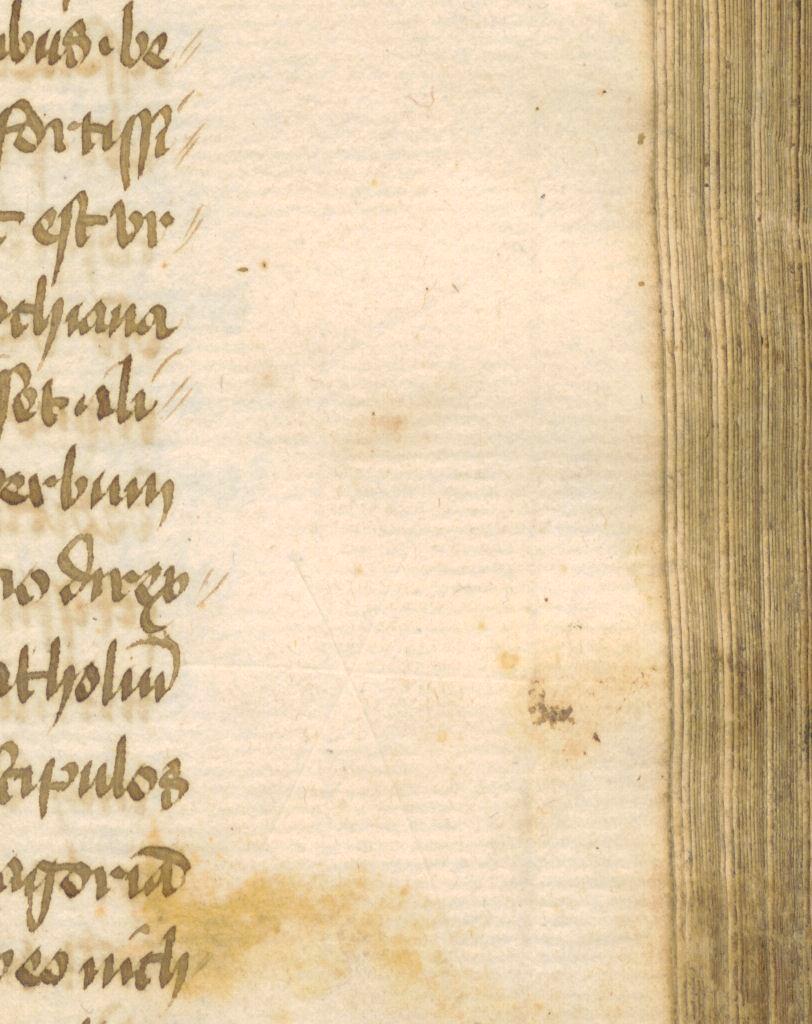 ibus · be //
fortissi //
est vr //
ochiana
set · ali //
verbum
no direx //
atholicū
scipulos
agoriā
eo nich